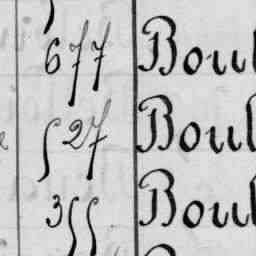 677 Boul
527 Boul
355 Boul